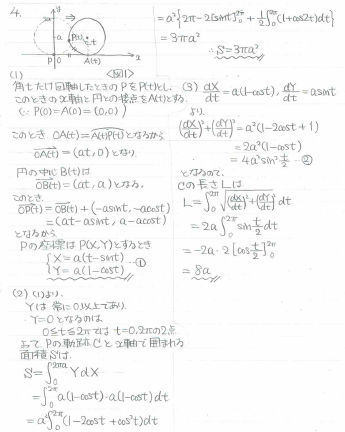 4.
y
a
P(t)
t
P
O
A(t)
x
<図1>
(1)
角tだけ回転したときのPをP(t)とし、
このときのx軸と円との接点をA(t)とする
(∵ P(0)=A(0)=(0,0))
このとき、OA(t)=A(t)P(t)となるから
OA(t)=(at,0)となり、
円の中心B(t)は
OB(t)=(at,a)となる。
このとき、
OP(t)=OB(t)+(-asint,-acost)
=(at-asint, a-acost)
となるから
Pの座標はP(X,Y)とするとき
{X=a(t-sint)
Y=a(1-cost) …①
(2) (1)より、
Yは常に0以上であり、
Y=0となるのは
0≤t≤2πではt=0,2πの2点
よってPの軌跡Cとx軸で囲まれる
面積Sは、
S=∫₀^{2πa} Y dX
=∫₀^{2π} a(1-cost)·a(1-cost)dt
=a²∫₀^{2π}(1-2cost+cos²t)dt
=a²{2π-2[sint]₀^{2π}+½∫₀^{2π}(1+cos2t)dt}
=3πa²
∴S=3πa²
(3) dX/dt=a(1-cost), dY/dt=asint
より、
(dX/dt)²+(dY/dt)²=a²(1-2cost+1)
=2a²(1-cost)
=4a²sin²t/2 …②
となるので、
Cの長さLは
L=∫₀^{2π}√((dX/dt)²+(dY/dt)²)dt
=2a∫₀^{2π}sin t/2 dt
=-2a·2[cos t/2]₀^{2π}
=8a